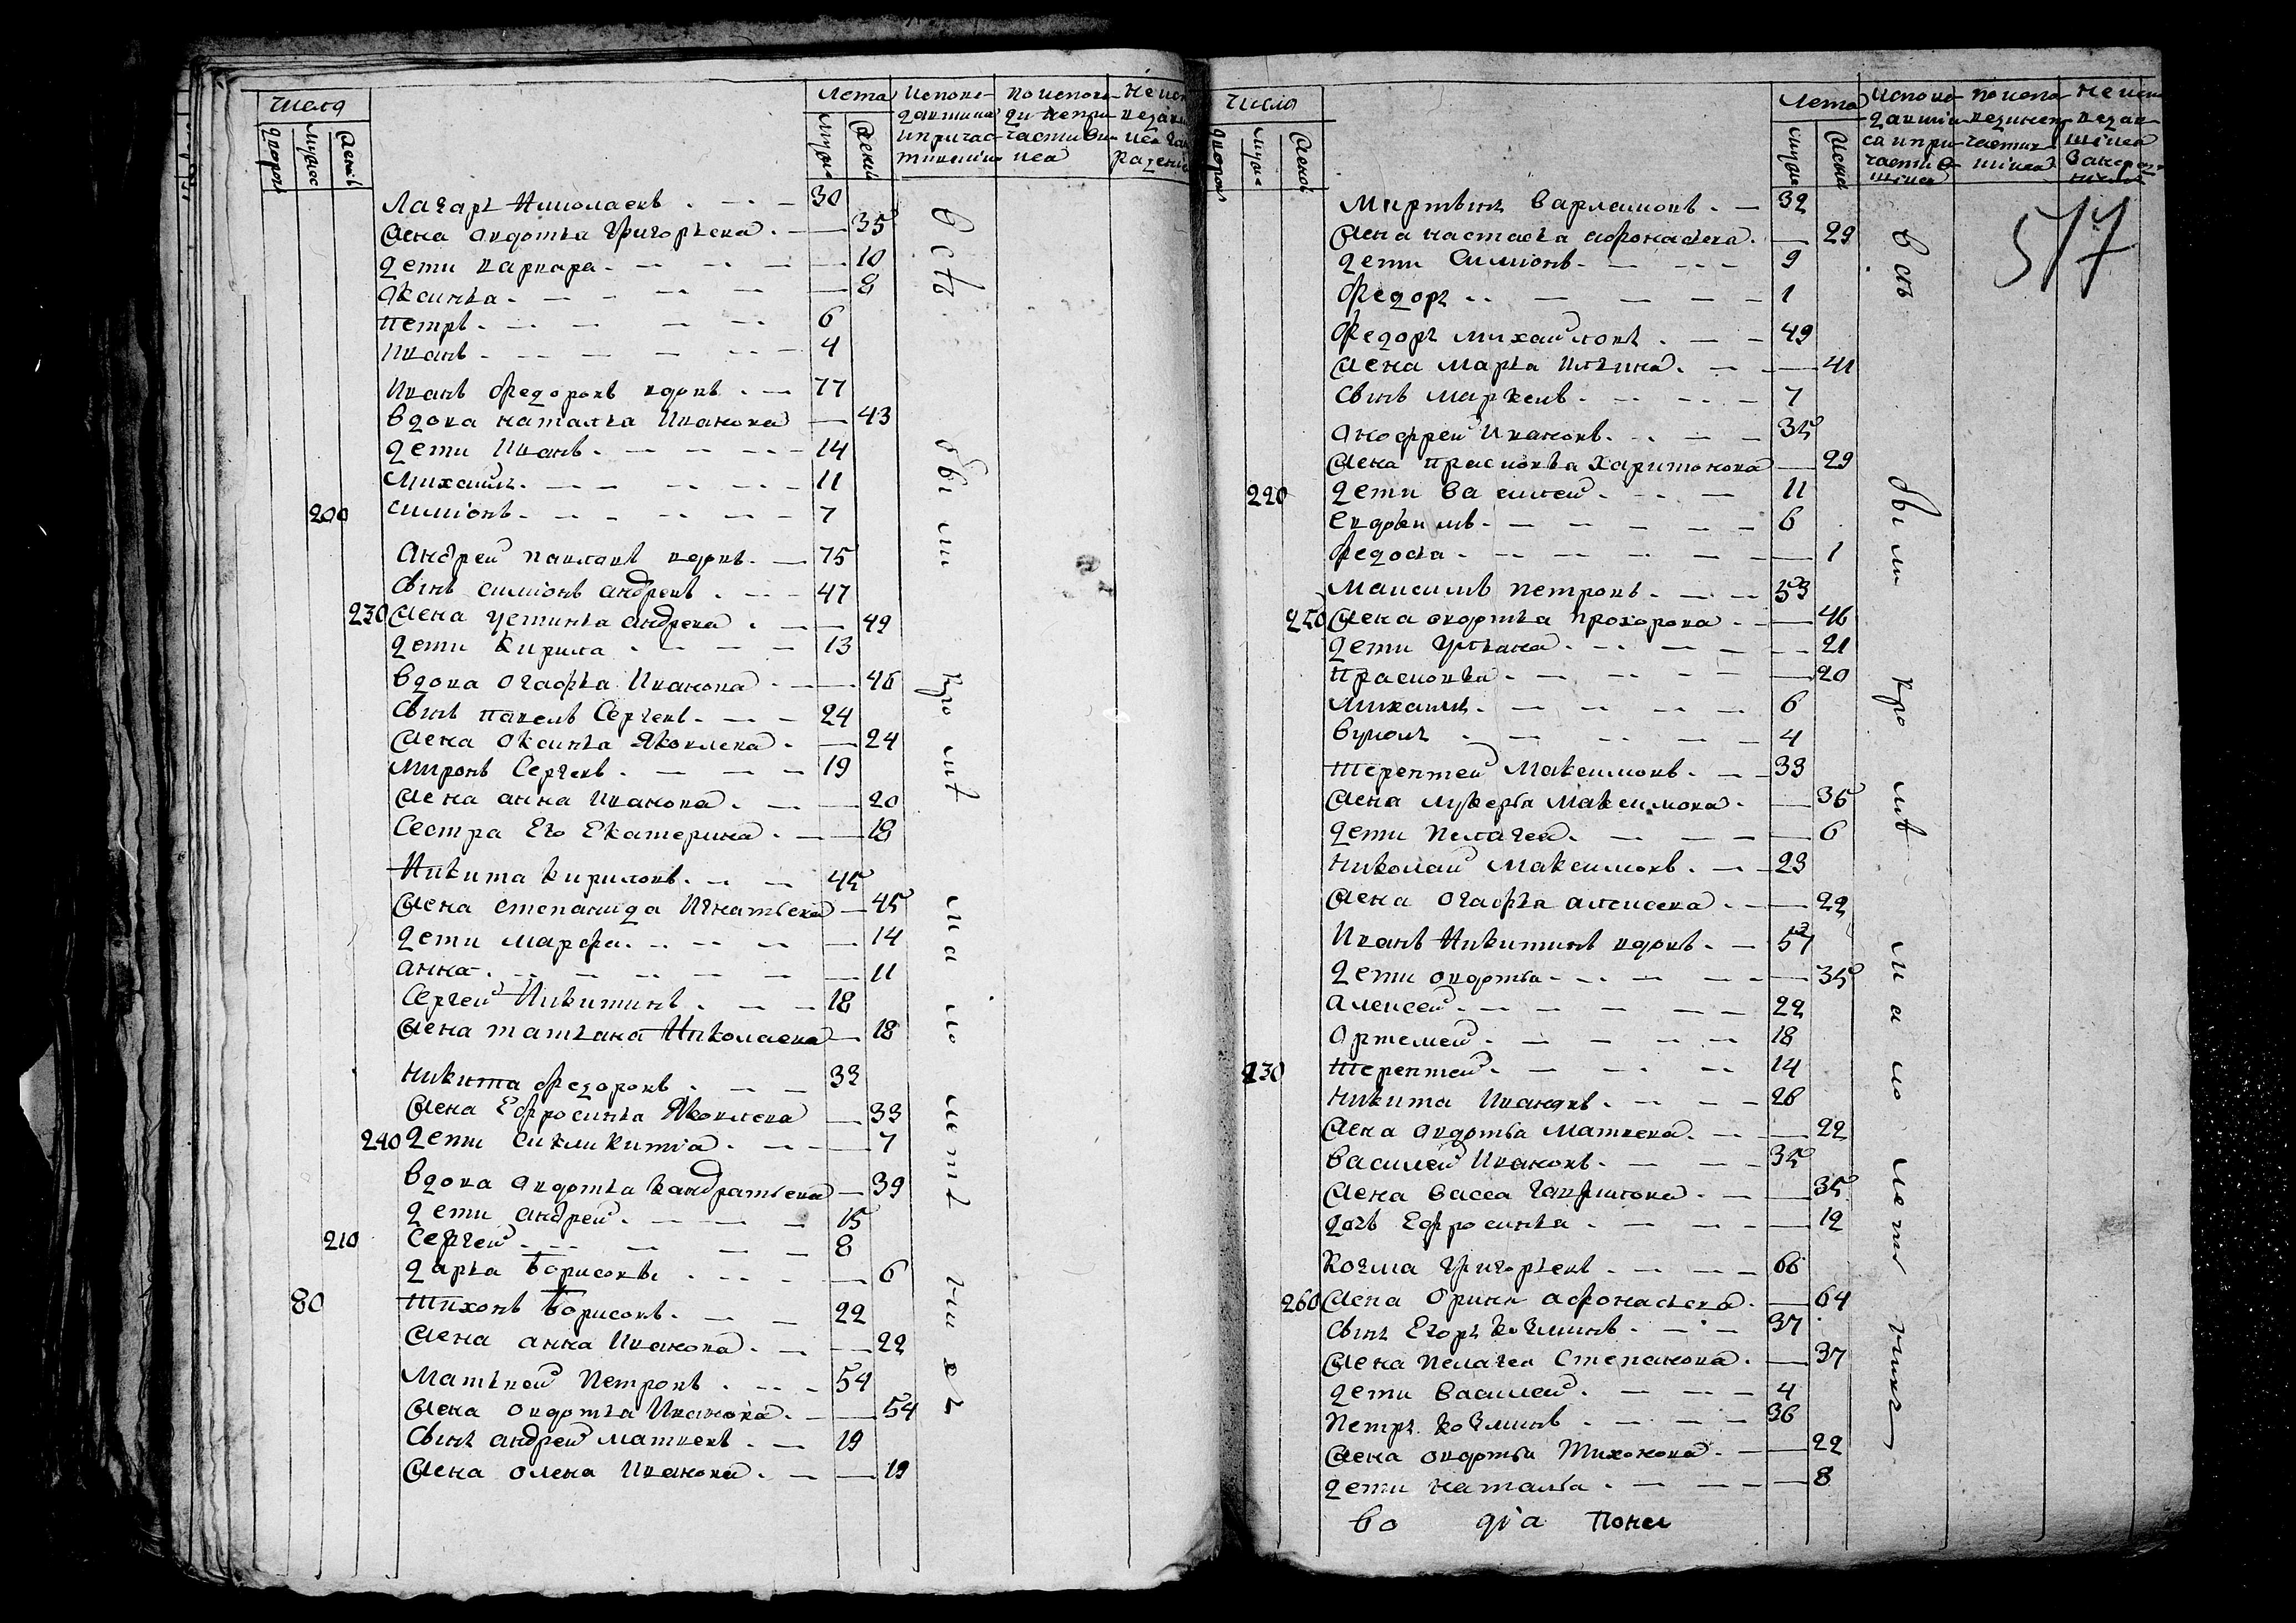 Числа
Лета
Испове-
давшияся
и причас-
тившияся
По испове-
ди непри-
частивши-
ися
Не испо-
дворовъ
мужес
женъ
мужес
женск
Лазарь Николаевъ 30
Жена Овдотья Григорьева 35
Дети Варвара 10
Оксинья 8
Петръ 6
Иванъ 4
Иванъ Федоровъ вдовъ 77
Вдова Наталья Иванова 43
Дети Иванъ 14
Михаилъ 11
200 Симионъ 7
Андрей Павловъ вдовъ 75
Сынъ Симионъ Андревъ 47
230 Жена Устинья Андрева 49
Дети Кирила 13
Вдова Огафья Иванова 46
Сынъ Павелъ Сергевъ 24
Жена Оксинья Яковлева 24
Миронъ Сергевъ 19
Жена Анна Иванова 20
Сестра Его Екатерина 18
Никита Кириловъ 45
Жена Степанида Игнатьева 45
Дети Марфа 14
Анна 11
Сергей Никитинъ 18
Жена Татьяна Николаева 18
Никита Федоровъ 33
Жена Ефросинья Яковлева 33
240 Дети Сикликитиа 7
Вдова Овдотья Кандратьева 39
Дети Андрей 15
210 Сергей 8
Дарья Борисовы 6
80 Тихонъ Борисовъ 22
Жена Анна Иванова 22
Матвей Петровъ 54
Жена Овдотья Иванова 54
Сынъ Андрей Матвевъ 19
Жена Олена Иванова 19
Всъ были кромъ малолетныхъ
Числа
Лета
Испове-
давшия-
ся и при-
частив-
шися
По испо-
вединеп-
частив-
шися
Не испо-
ведав-
шися
дворовъ
мужес
женъ
мужес
женск
517
Миртынъ Варламовъ 32
Жена Настасья Афонасьева 29
Дети Симионъ 9
Федоръ 1
Федоръ Михайловъ 49
Жена Марья Ильина 41
Сынъ Маркелъ 7
Онофрей Ивановъ 35
Жена Прасковья Харитонова 29
220 Дети Василей 11
Евдокимъ 6
Федосья 1
Максимъ Петровъ 53
250 Жена Овдотья Прохорова 46
Дети Ульяна 21
Прасковья 20
Михаилъ 6
Вуколъ 4
Терентей Максимовъ 33
Жена Лукерья Максимова 35
Дети Пелагея 6
Николай Максимовъ 23
Жена Огафья Алексеева 22
Иванъ Никитинъ вдовъ 57
Дети Овдотья 35
Алексей 22
Ортемей 18
230 Терентей 14
Никита Ивановъ 26
Жена Овдотья Матвева 22
Василей Ивановъ 35
Жена Васса Гаврилова 35
Дочь Ефросинья 12
Козма Григорьевъ 66
260 Жена Орина Афонасьева 64
Сынъ Егоръ Козминъ 37
Жена Пелагея Степанова 37
Дети Василей 4
Петръ Козминъ 36
Жена Овдотья Тихонова 22
Дети Наталья 8
Всъ были кромъ малолетныхъ
во диа Поно